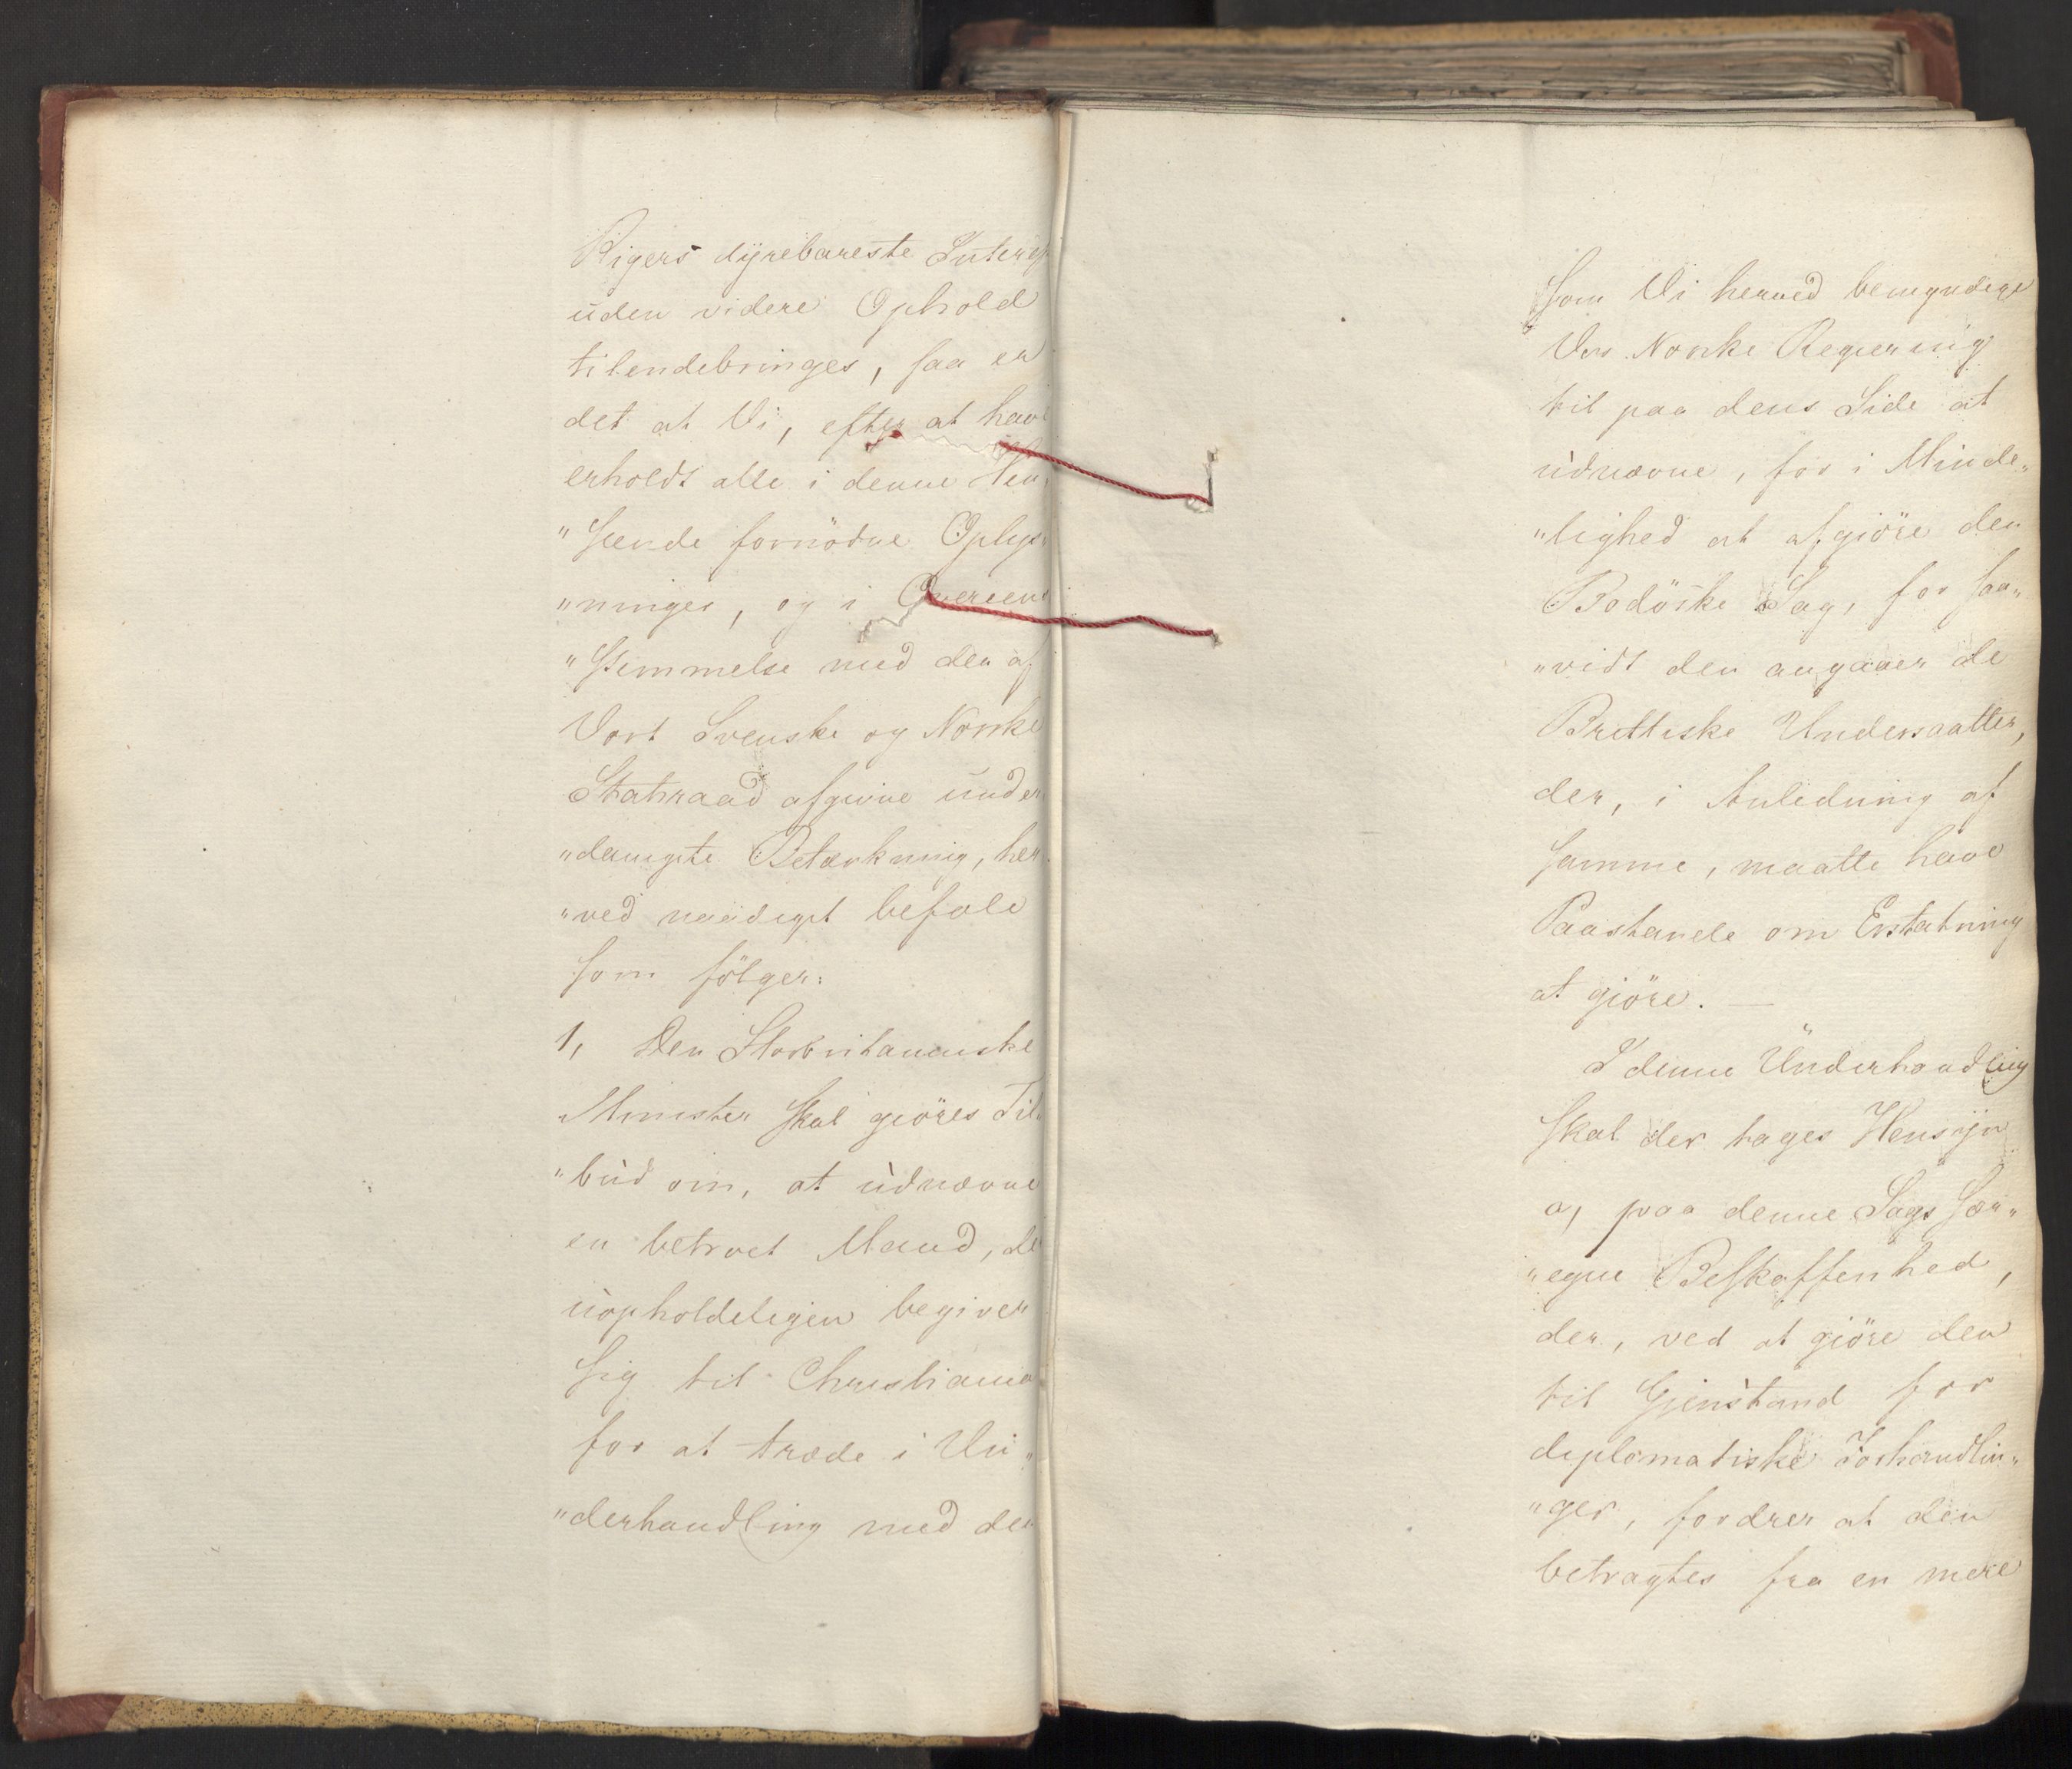 Rigers dÿrebareste Interes
uden videre Ophold
tilendebringes, saa er
det at Vi, efter at have
erholdt alle i denne Hen„
„seende fornödne Oplys„
„ninger, og i Overeens
„stemmelse med den af
Vort Svenske og Norske
Statsraad afgivne under
„danigste Betænkning, her
„ved naadigst befale
som fölger:
1, Den Storbritannniske
Minister skal giöres Til„
„bud om, at udnævne
en betroet Mand, der
uopholdeligen begiver
sig til Christiania
for at træde i Un„
„derhandling med den
som Vi herved bemyndige
Vor Norske Regiering
til paa dens Side at
udnævne, for i Minde„
„lighed at afgiöre den
Bodöske Sag, for saa„
„vidt den angaaer de
Brittiske Undersaatter,
der, i Anledning af
samme, maatte have
Paastande om Erstatning
at giöre. —
I denne Underhandling
skal der tages Hensÿn
a, paa denne Sags sær„
„egne Beskaffenhed,
der, ved at giöre den
til Gjenstand for
diplomatiske Forhandlin„
„ger, fordrer at den
betragtes fra en mere